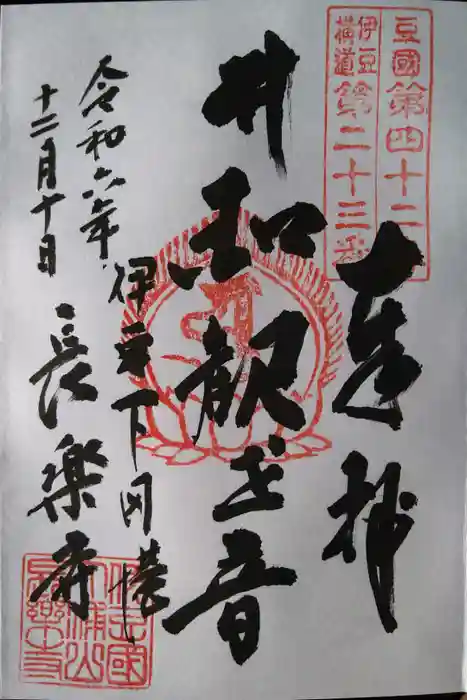 豆國第四十二
伊豆
横道
第二十三番
奉拝
観世音
伊豆下田港
令和六年
十二月十日
長楽寺
伊豆國
大浦山
長樂寺